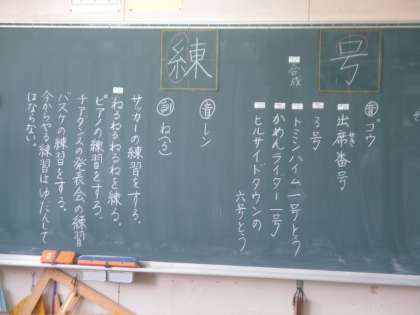 号
音ゴウ
出席番号
せき
3号
トミンハイム一号とう
かめんライダー一号
ヒルサイドタウンの
六号とう
合成
練
音レン
訓ね(る)
サッカーの練習をする。
ねるねるねるねを練る。
ピアノの練習をする。
チアダンスの発表会の練習
バスケの練習をする。
今からやる練習はゆだんして
はならない。